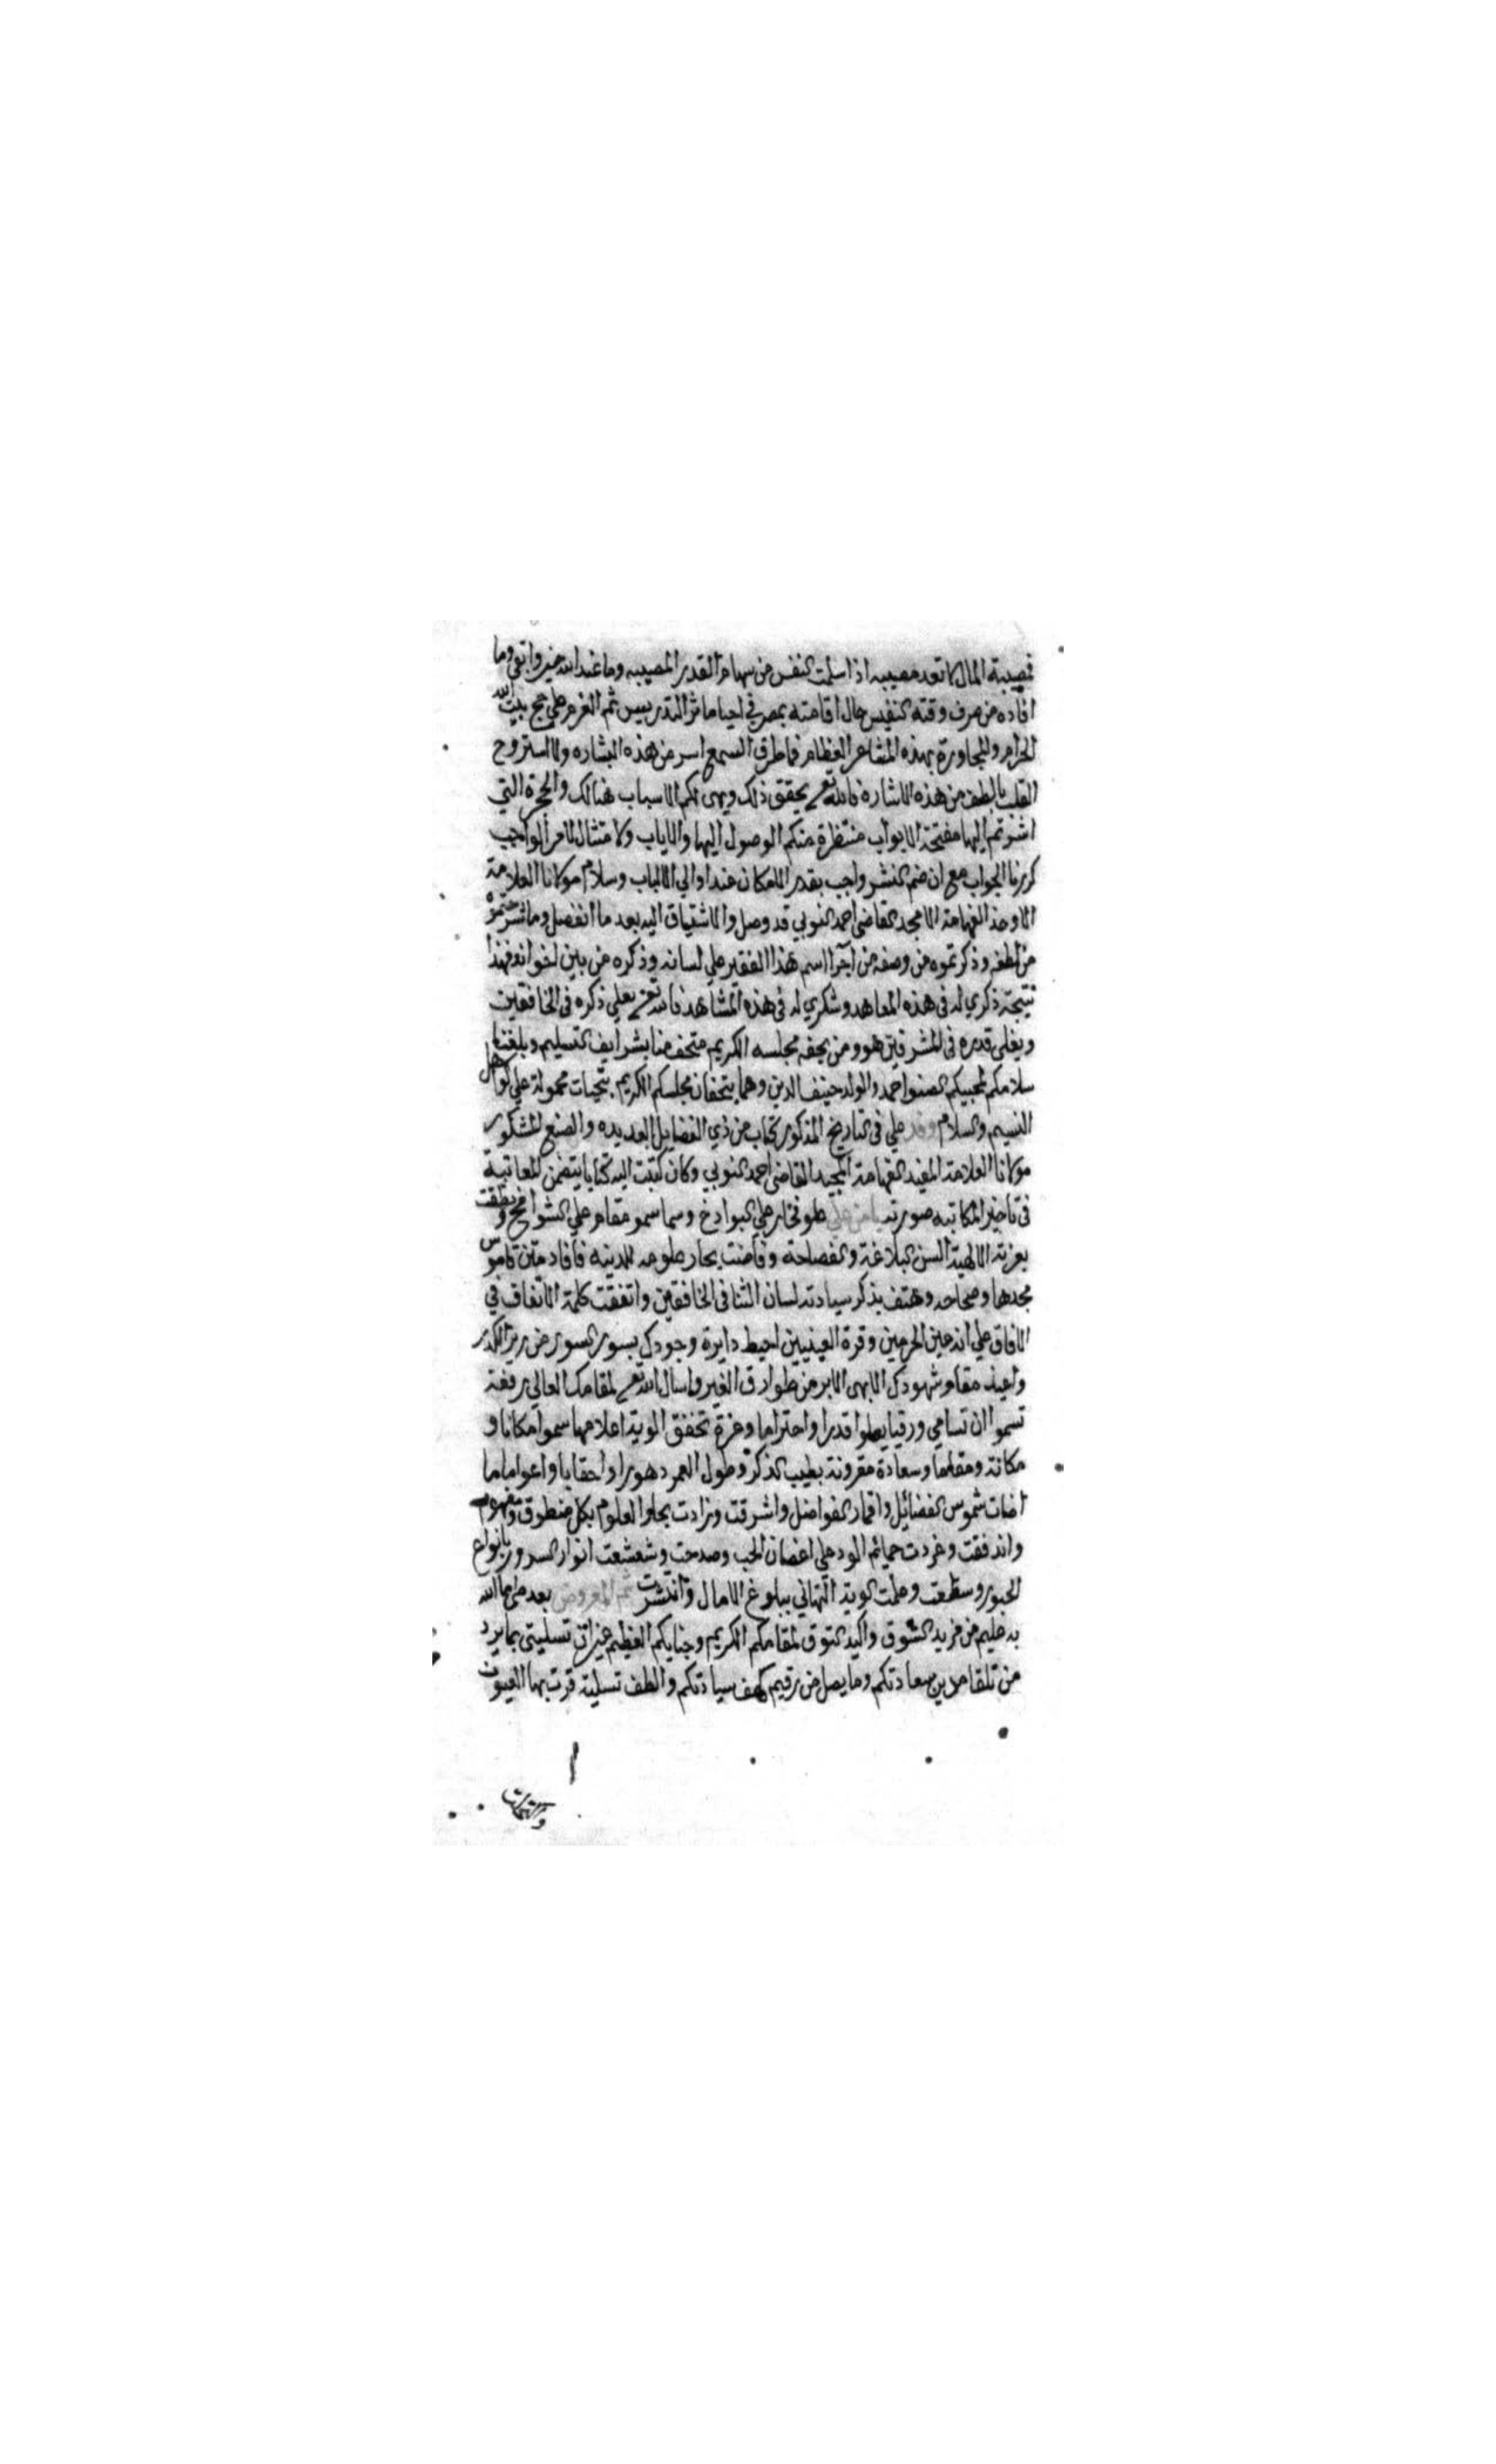 فمصيبة المال لا تعد مصيبه اذا سلمت النفس من سهام القدر المصيبه وما عند الله خير وابقى وما
افاده من صرف وقته النفيس حال اقامته بمصر في احيا ماثر التدريس ثم العزم على حج بيت الله
الحرام والمجاورة بهذه المشاعر العظام فما طرق السمع اسر من هذه البشاره ولا استروح
القلب بالطف من هذه الاشارة فالله تعالى يحقق ذلك ويهيى لكم الاسباب هنالك والحجرة التي
اشرتم اليها مفتحة الابواب منتظرة منكم الوصول اليها والاياب ولامتثال الامر الواجب
كررنا الجواب مع ان ضم النشر واجب بقدر الامكان عند اولي الالباب وسلام مولانا العلامة
الاوحد الفهامة الامجد القاضي احمد النوبي قد وصل والاشتياق اليه بعد ما انفصل وما شرحتموه
من لطفه وذكرتموه من وصفه من اجرا اسم هذا الفقير على لسانه وذكره من بين اخوانه فهذا
نتيجة ذكري له في هذه المعاهد وشكري له في هذه المشاهد فالله تعالى يعلي ذكره في الخافقين
ويغلي قدره في المشرقين هو ومن يحفه مجلسه الكريم متحف منا بشرايف التسليم وبلغنا
سلامكم لمحبيكم الصنو احمد والولد حنيف الدين وهما يتحفان مجلسكم الكريم بتحيات محمولة على كواهل
النسيم والسلام وفد علي في التاريخ المذكور كتاب من ذي الفضايل العديده والصنع المشكور
مولانا العلامة المفيد الفهامة المجيد القاضي احمد النوبي وكان كتبت اليه كتابا يتضمن المعاتبة
في تاخير المكاتبه صورته يا من علي علو فخار على البوادخ وسما سمو مقام على الشوامخ ونطقت
بعزته الالهية السن البلاغة والفصاحة وفاضت بحار علومه اللدنيه فافاد متن قاموس
مجدها وصحاحه وهتف بذكر سيادته لسان الثنا في الخافقين واتفقت كلمة الاتفاق في
الافاق على انه عين الحرمين وقرة العينين احيط دايرة وجودك بسور السور من ريز الكدر
واعيذ مقام شهودك الابهى الابر من طوارق الغير واسال الله تعالى لمقامك العالي رفعة
تسموا ان تسامي ورقيا يعلوا قدرا واحتراما وعزة تخفق الوية اعلامها سموا مكانا و
مكانة ومقاما وسعادة مقرونة بطيب الذكر وطول العمر دهورا واحقابا واعواما ما
اضات شموس الفضائل واقمار الفواضل واشرقت وزادت بحار العلوم بكل منطوق ومفهوم
واندفقت وغردت حمائم الود على اغصان الحب وصدحت وشعشعت انوار السرور بانواع
الحبور وسطعت وعلت الوية التهاني ببلوغ الامال وانتشرت ثم المعروض بعد ما الله
به عليم من مزيد الشوق واكيد التوق لمقامكم الكريم وجنابكم العظيم غير ان تسليتي بما يرد
من تلقا مدين سعادتكم وما يصل من رقيم كهف سيادتكم والطف تسلية قرت بها العيون